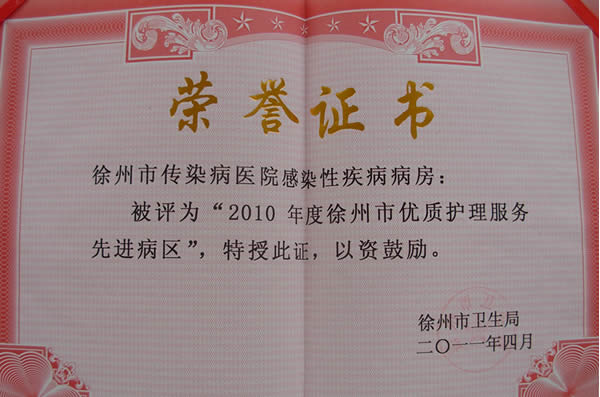 荣誉证书
徐州市传染病医院感染性疾病病房：
被评为“2010 年度徐州市优质护理服务
先进病区”，特授此证，以资鼓励。
徐州市卫生局
二〇一一年四月